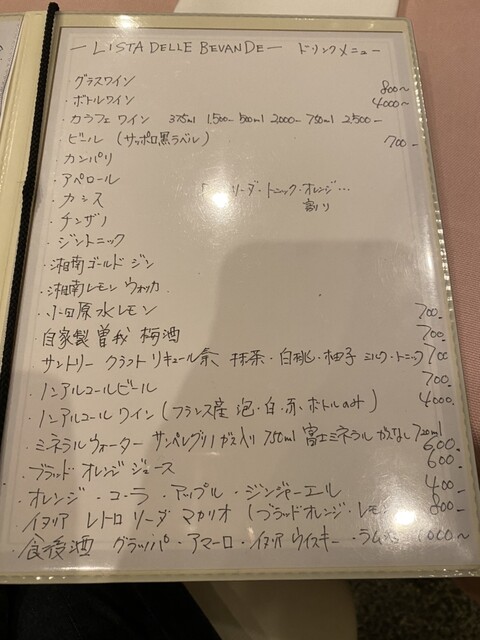 — LISTA DELLE BEVANDE — ドリンクメニュー
グラスワイン 800〜
・ボトルワイン 4000〜
・カラフェ ワイン 375ml 1,500- 500ml 2000- 750ml 2,500-
・ビール (サッポロ黒ラベル) 700-
・カンパリ
・アペロール
・カシス ソーダ・トニック・オレンジ…
・チンザノ 割り
・ジントニック
・湘南ゴールド ジン
・湘南レモン ウォッカ
・小田原 水 レモン 700-
・自家製 曽我 梅酒 700-
サントリー クラフト リキュール 抹茶・白桃・柚子 ミルク・トニック 700
・ノンアルコールビール 700-
・ノンアルコール ワイン (フランス産 泡・白・赤 ボトルのみ) 4000-
・ミネラルウォーター サンペレグリノ ガス入り 750ml 富士ミネラル ガスなし 720ml 600-
・ブラッド オレンジ ジュース 600-
・オレンジ・コーラ・アップル・ジンジャーエール 400-
・イタリア レトロ ソーダ マカリオ (ブラッドオレンジ・レモン 800-
・食後酒 グラッパ・アマーロ・イタリア ウイスキー・ラム 1000〜